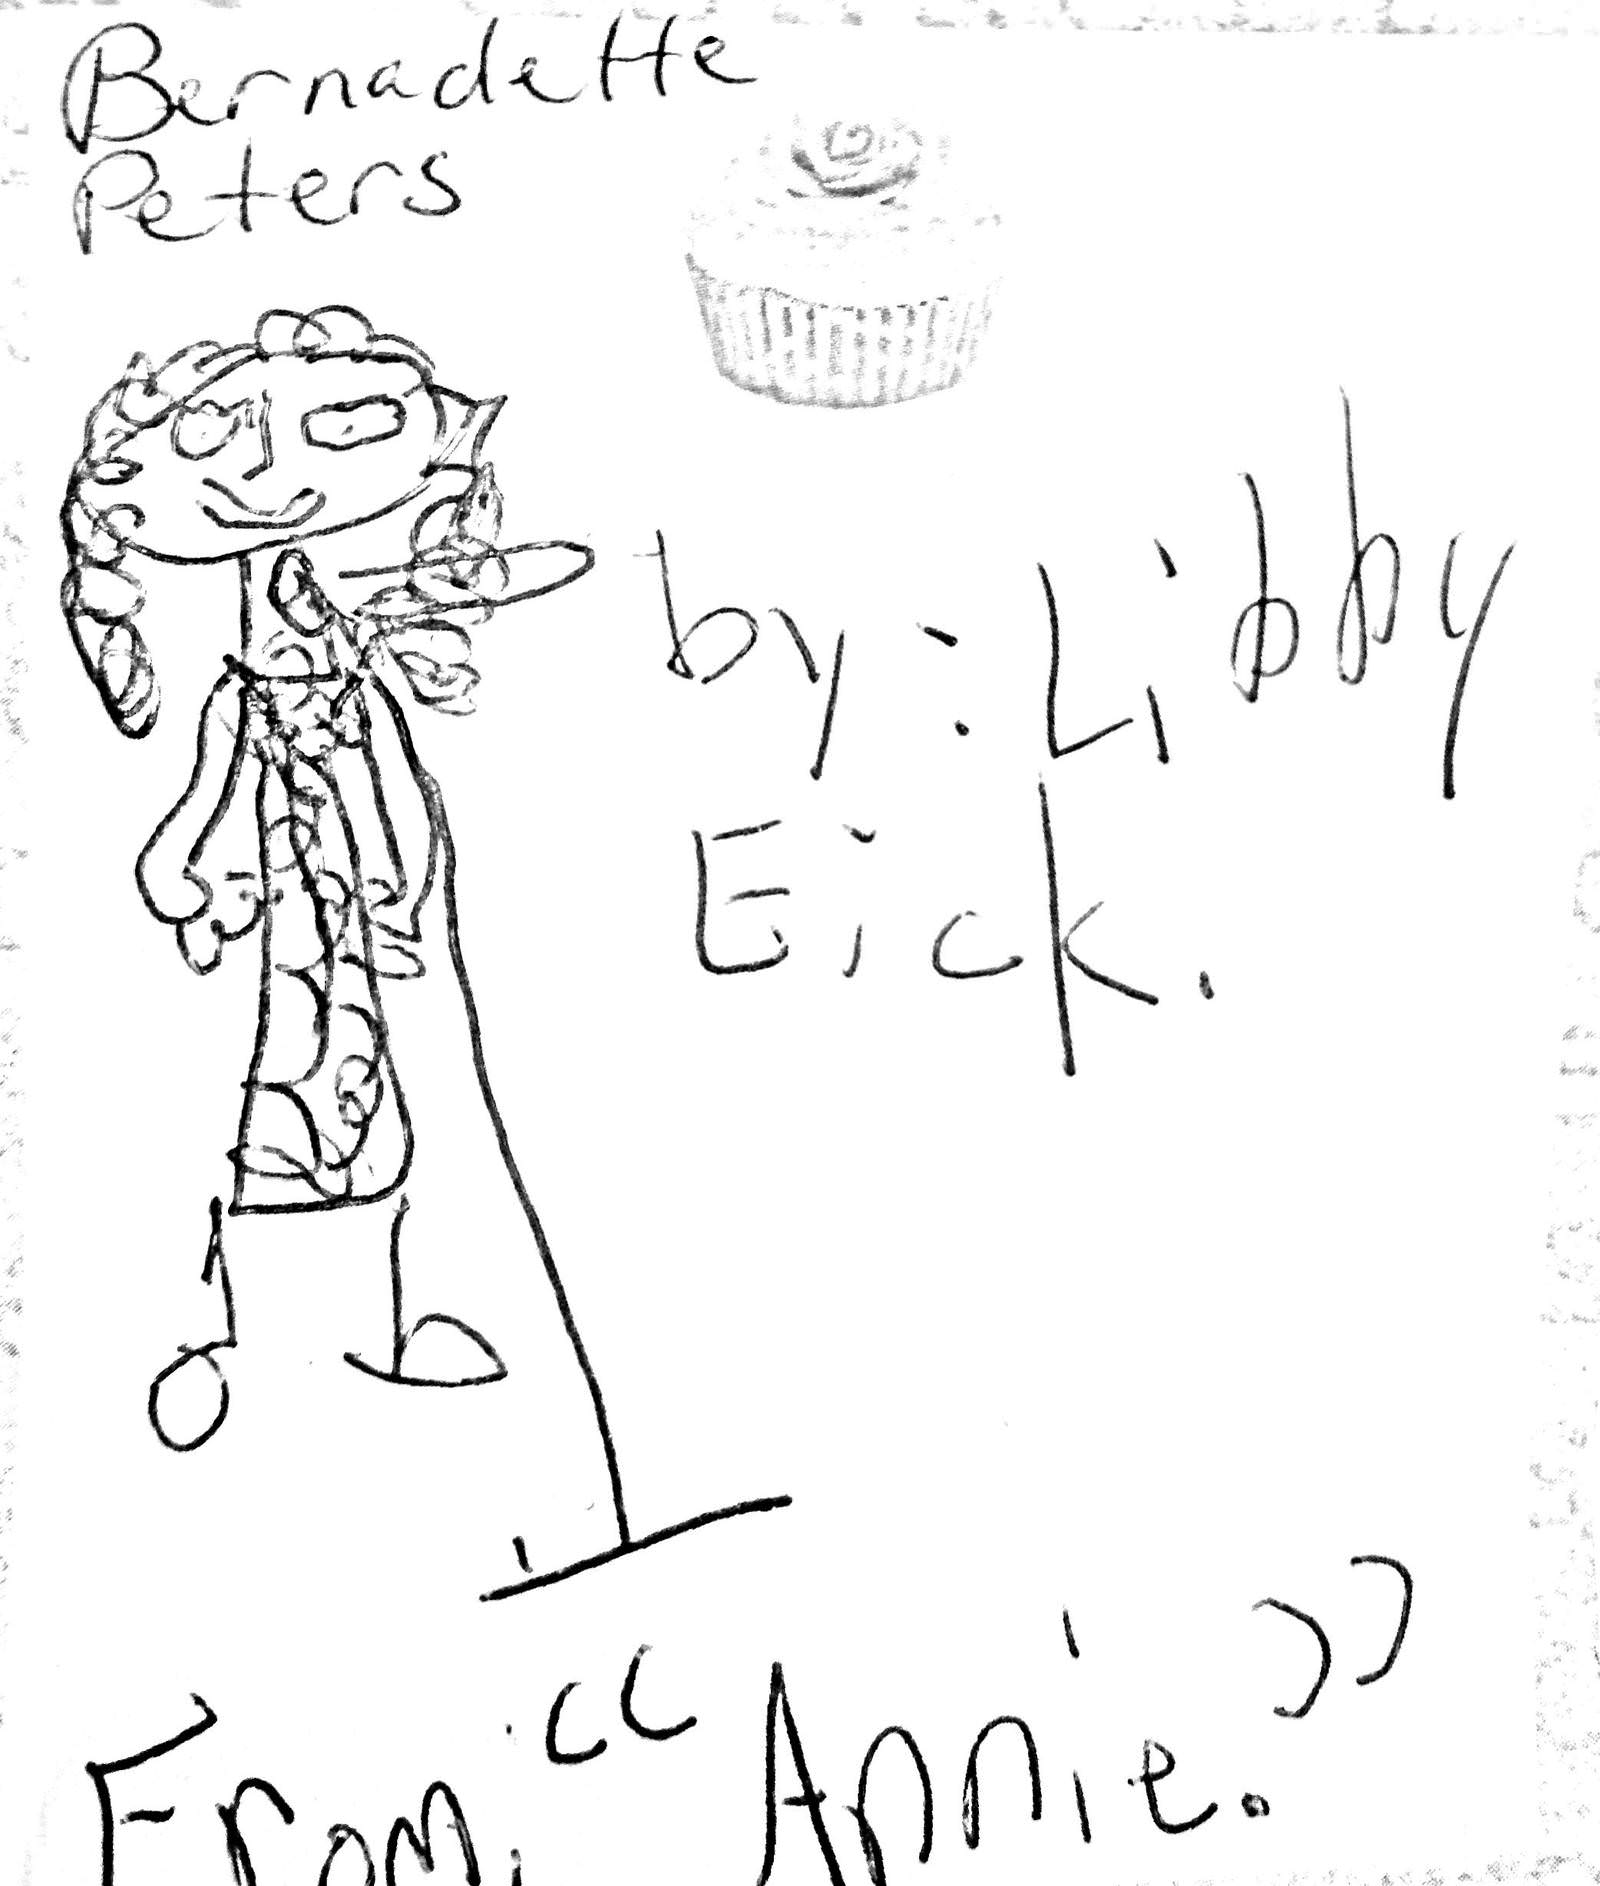 Bernadette
Peters
by: Libby
Eick.
From, "Annie."